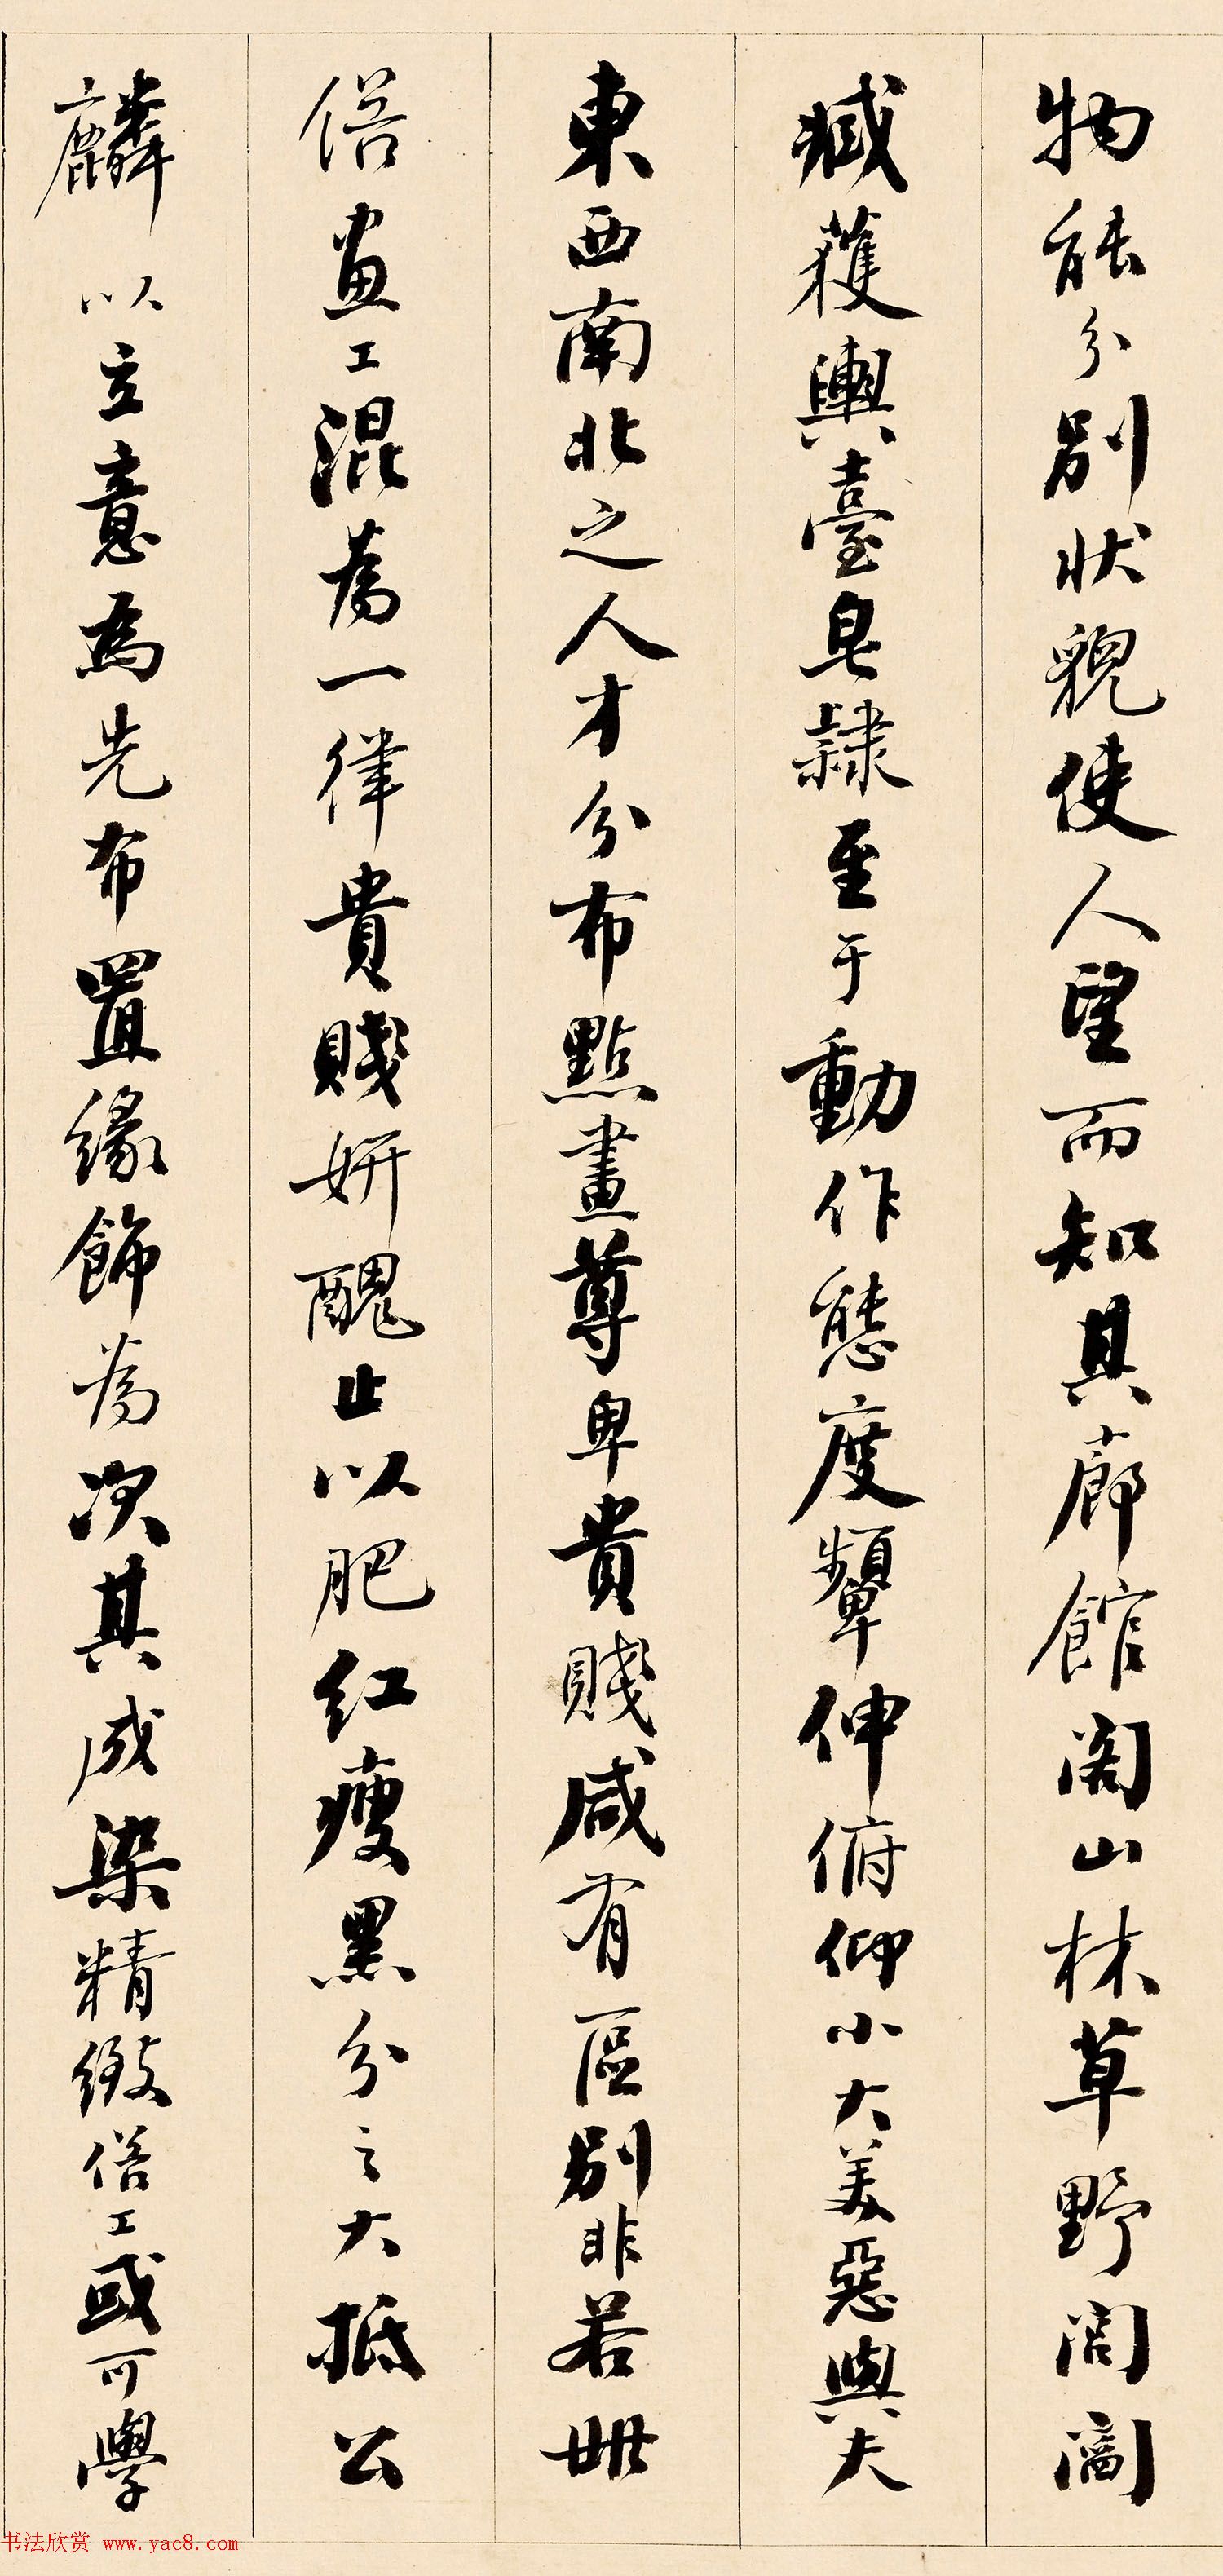 物能分別狀貌使人望而知其廊館閣山林草野閭閻
臧獲輿臺皂隸至于動作態度顰伸俯仰小大美惡與夫
東西南北之人才分布點畫尊卑貴賤咸有區別非若世
俗畫工混為一律貴賤妍醜止以肥紅瘦黑分之大抵公
麟以立意為先布置緣飾為次其成染精緻俗工或可學
书法欣赏 www.yac8.com